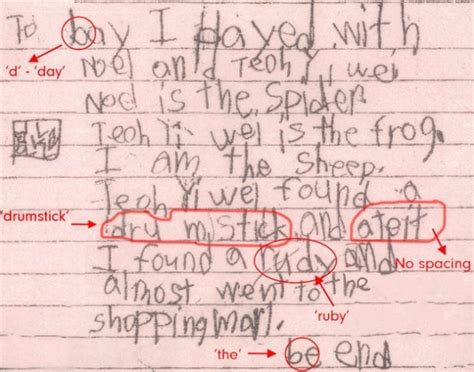 To bay I played with
'd' - 'day'
Noel and Teoh Yi wei
Noel is the Spider
Teoh Yi- wei is the frog.
I am the Sheep.
Teoh Yi wei found a
'drumstick'
dru mi stick and atent
No spacing
I found a rudy and
almost went to the
'ruby'
shopping marl.
'the'
be end